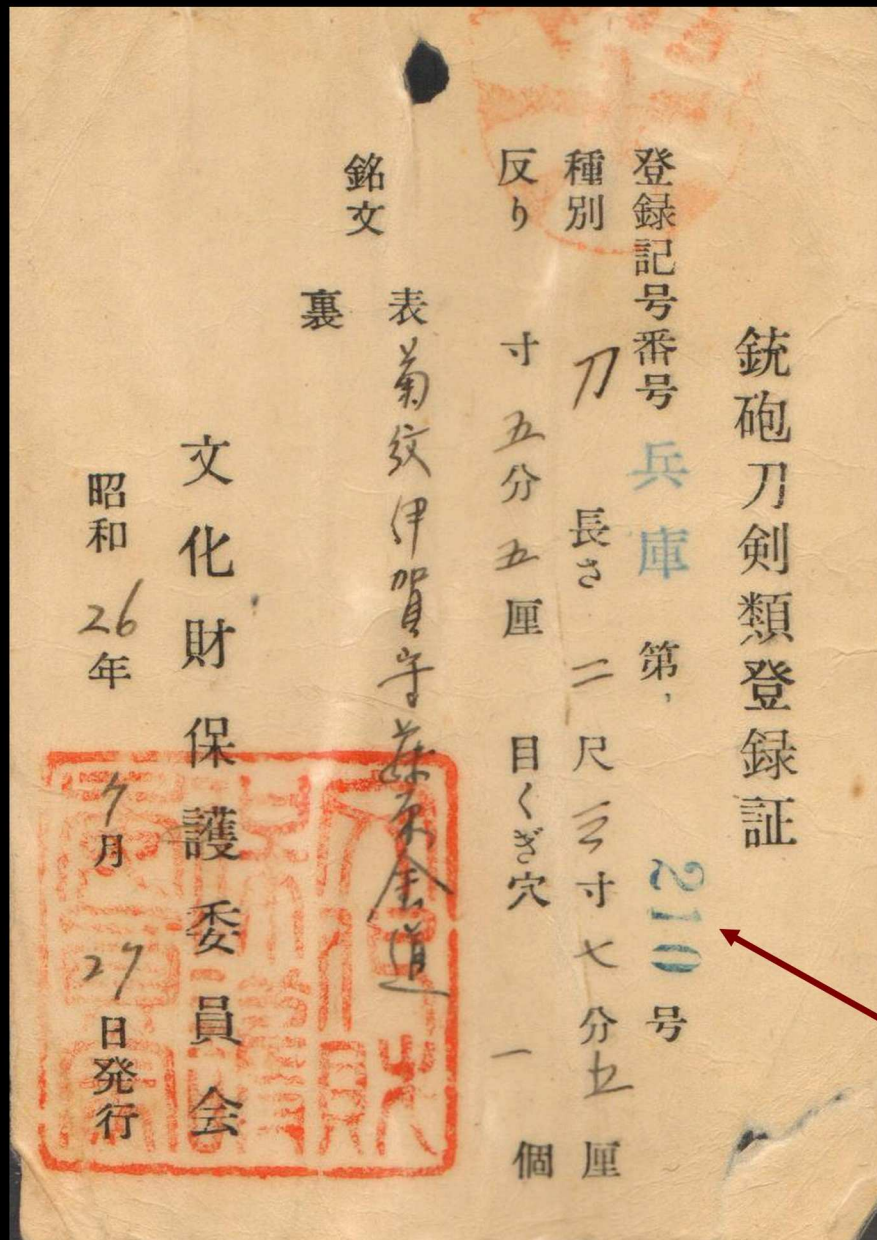 銃砲刀剣類登録証
登録記号番号 兵庫 第 210 号
種別 刀 長さ 二尺三寸七分五厘
反り 寸五分五厘 目くぎ穴 一個
銘文 表 菊紋伊賀守藤原金道
裏
文化財保護委員会
昭和26年 月27日発行